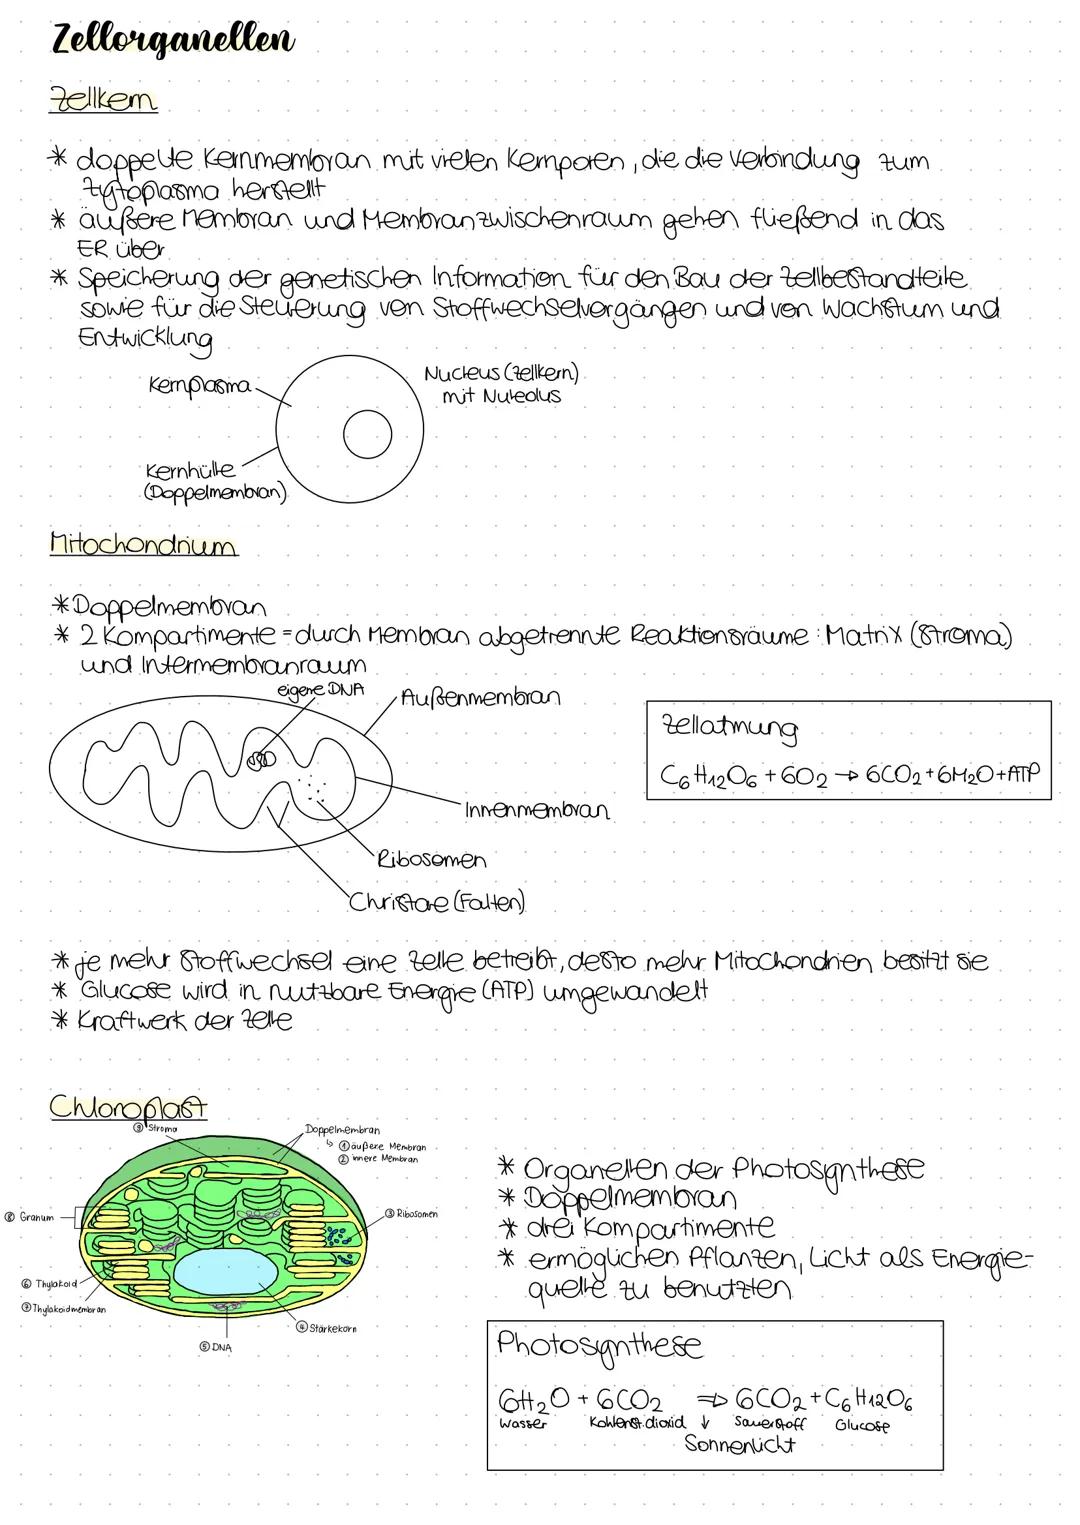 Zellorganellen
Zellkern
* doppelte Kernmembran mit vielen Kernporen, die die Verbindung zum
Zytoplasma herstellt
* äußere Membran und Membranzwischenraum gehen fließend in das
ER über
* Speicherung der genetischen Information für den Bau der Zellbestandteile
sowie für die Steuerung von Stoffwechselvorgängen und von Wachstum und
Entwicklung
Kernplasma
Nucleus (Zellkern)
mit Nukeolus
Kernhülle
(Doppelmembran)
Mitochondrium
* Doppelmembran
* 2 Kompartimente = durch Membran abgetrennte Reaktionsräume: Matrix (Stroma)
und Intermembranraum
eigene DNA
Außenmembran
Zellatmung
C₆H₁₂O₆ + 6O₂ → 6CO₂ + 6H₂O + ATP
Innenmembran
Ribosomen
Christae (Falten)
* je mehr Stoffwechsel eine Zelle betreibt, desto mehr Mitochondrien besitzt sie
* Glucose wird in nutzbare Energie (ATP) umgewandelt
* Kraftwerk der Zelle
Chloroplast
⑨ Stroma
Doppelmembran
↳ ① äußere Membran
② innere Membran
⑧ Granum
③ Ribosomen
⑥ Thylakoid
⑦ Thylakoidmembran
④ Stärkekorn
⑤ DNA
* Organellen der Photosynthese
* Doppelmembran
* drei Kompartimente
* ermöglichen Pflanzen, Licht als Energie-
quelle zu benutzten
Photosynthese
6H₂O + 6CO₂ ⇒ 6CO₂ + C₆H₁₂O₆
Wasser Kohlenst.dioxid ↓ Sauerstoff Glucose
Sonnenlicht